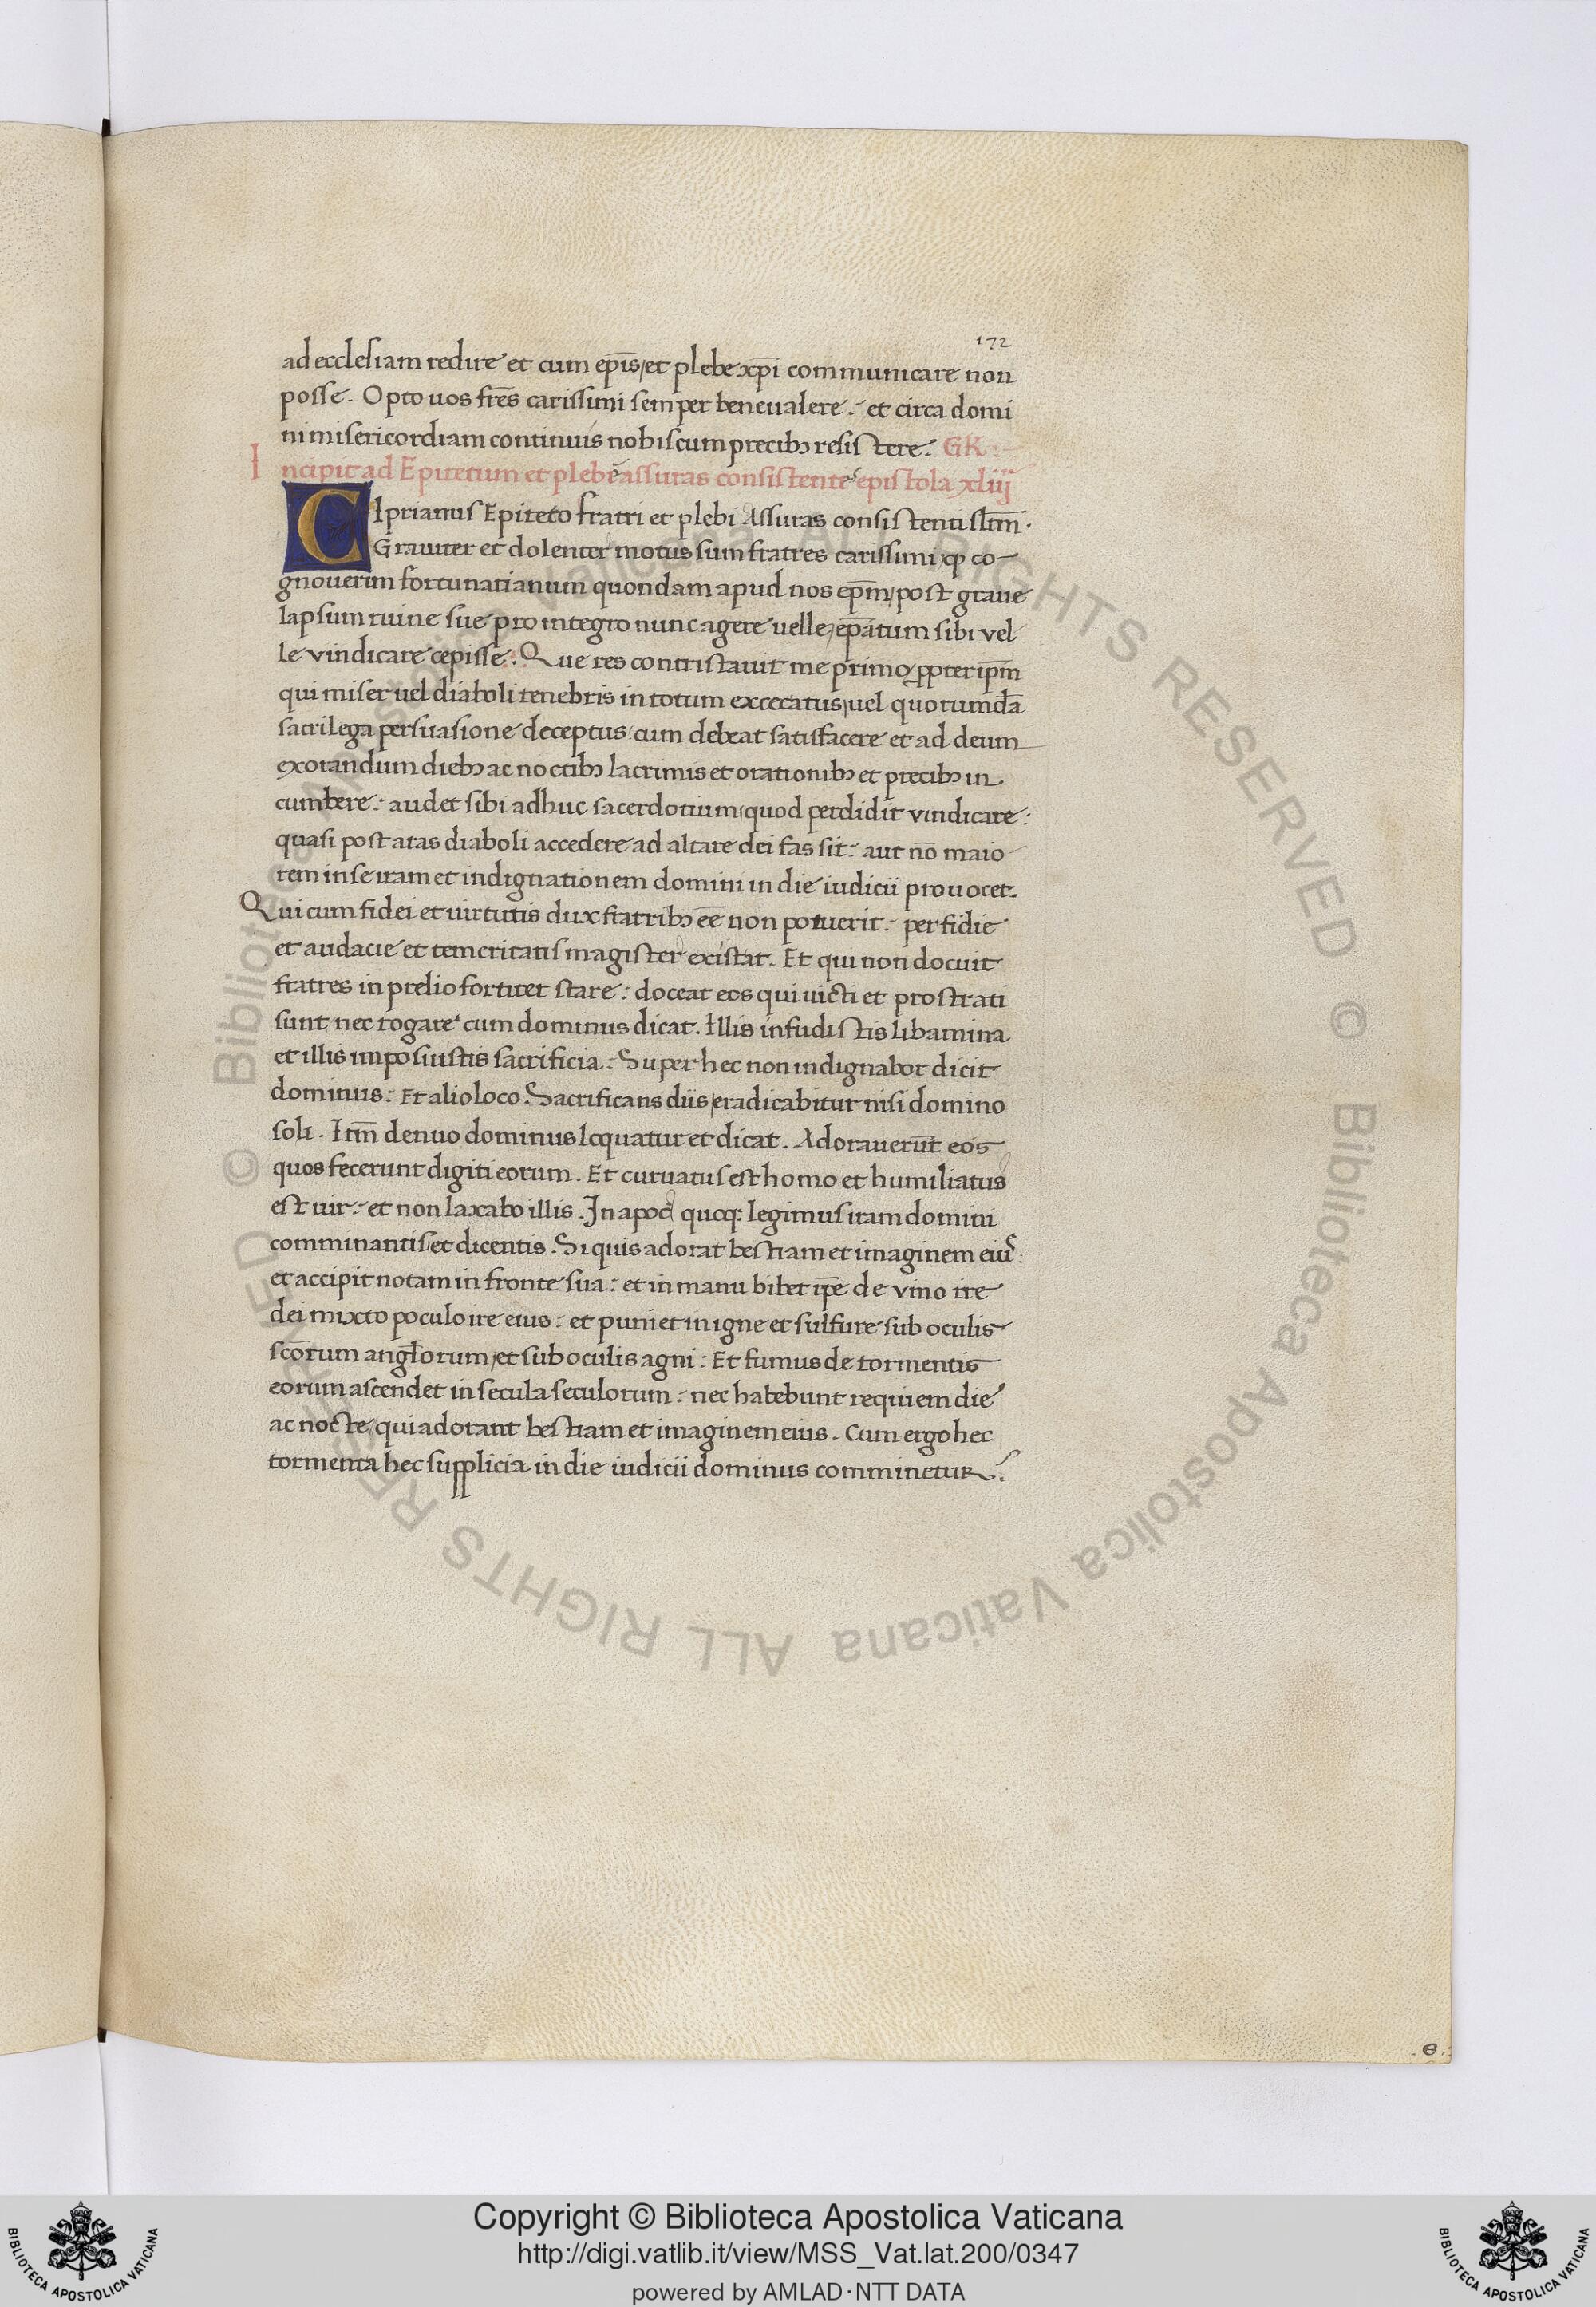 172
ad ecclesiam redire et cum ep̄is, et plebe xp̄i communicare non
posse. Opto uos fr̄es carissimi semper bene ualere: et circa domi
ni misericordiam continuis nobiscum precibꝫ resistere. GR
Incipit ad Epitetum et plebē assuras consistentē epistola xliij
CIprianus Epiteto fratri et plebi Assuras consistenti sl̄tm.
Grauiter et dolenter motus sum fratres carissimi, ꝙ co-
gnouerim fortunatianum quondam apud nos ep̄m, post graue
lapsum ruine sue pro integro nunc agere uelle, ep̄atum sibi vel
le vindicare cepisse. Que res contristauit me primo ꝓpter ip̄m
qui miser uel diaboli tenebris in totum excecatus, uel quorundā
sacrilega persuasione deceptus, cum debeat satisfacere et ad deum
exorandum diebꝫ ac noctibꝫ lacrimis et orationibꝫ et precibꝫ in
cumbere: audet sibi adhuc sacerdotium, quod perdidit vindicare:
quasi post aras diaboli accedere ad altare dei fas sit: aut nō maio
rem in se iram et indignationem domini in die iudicii prouocet.
Qui cum fidei et uirtutis dux fratribꝫ eē non potuerit: perfidie
et audacie et temeritatis magister existat. Et qui non docuit
fratres in prelio fortiter stare: doceat eos qui uicti et prostrati
sunt nec rogare cum dominus dicat. Illis infudistis libamina
et illis imposuistis sacrificia: Super hec non indignabor dicit
dominus: Et alio loco. Sacrificans diis, eradicabitur nisi domino
soli. Itm̄ denuo dominus loquatur et dicat. Adorauerūt eos
quos fecerunt digiti eorum. Et curuatus est homo et humiliatus
est uir: et non laxabo illis. In apoc quoqꝫ legimus iram domini
comminantis, et dicentis. Si quis adorat bestiam et imaginem eius:
et accipit notam in fronte sua: et in manu bibet ip̄e de vino ire
dei mixto poculo ire eius: et puniet in igne et sulfure sub oculis
sc̄orum angl̄orum, et sub oculis agni: Et fumus de tormentis
eorum ascendet in secula seculorum: nec habebunt requiem die
ac nocte, qui adorant bestiam et imaginem eius. Cum ergo hec
tormenta hec supplicia in die iudicii dominus comminetur:
.e.
© Biblioteca Apostolica Vaticana ALL RIGHTS RESERVED © Biblioteca Apostolica Vaticana ALL RIGHTS RESERVED
Copyright © Biblioteca Apostolica Vaticana
http://digi.vatlib.it/view/MSS_Vat.lat.200/0347
powered by AMLAD·NTT DATA
BIBLIOTECA APOSTOLICA VATICANA
BIBLIOTECA APOSTOLICA VATICANA